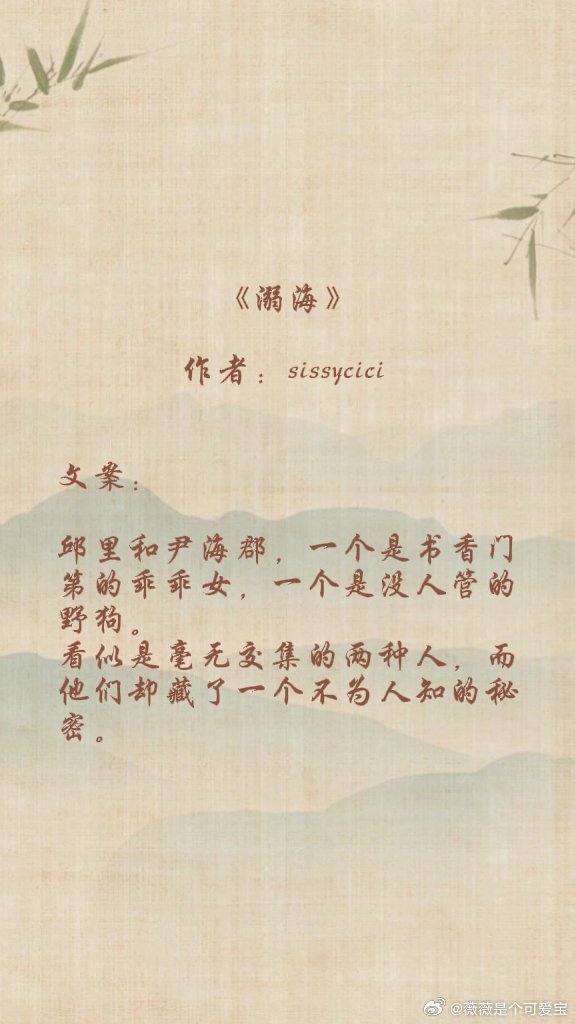 《溺海》
作者：sissycici
文案：
邱里和尹海郡，一个是书香门
第的乖乖女，一个是没人管的
野狗。
看似是毫无交集的两种人，而
他们却藏了一个不为人知的秘
密。
@薇薇是个可爱宝